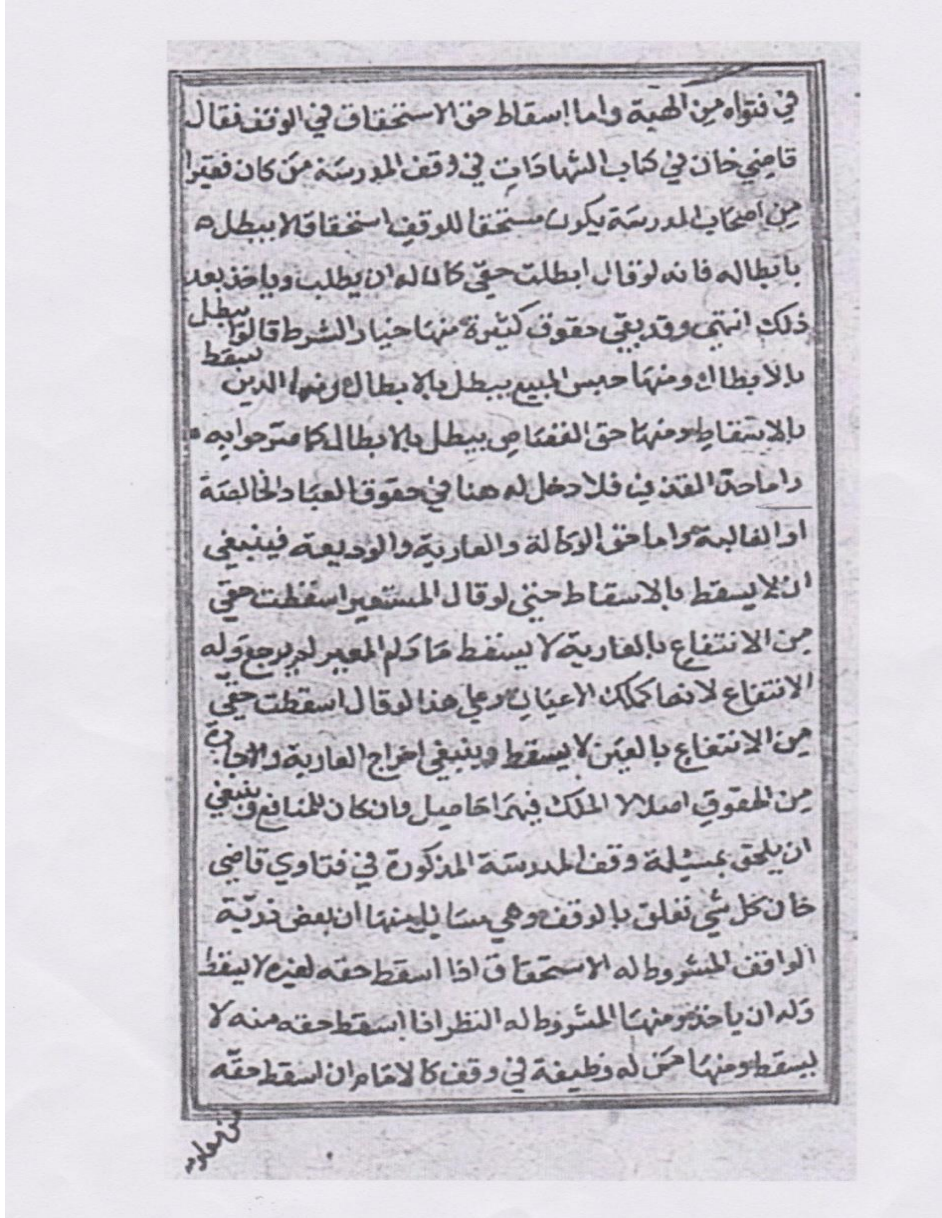 في فتواه من الهبة واما اسقاط حق الاستحقاق في الوقف فقال
قاضي خان في كتاب الشهادات في وقف المدرسة من كان فقيرا
من اصحاب المدرسة يكون مستحقا للوقف استحقاقا لا يبطل
بابطاله فانه لو قال ابطلت حقي كان له ان يطلب وياخذ بعد
ذلك انتهى وقد بقي حقوق كثيرة منها خيار الشرط قالوا يبطل
بالابطال ومنها حبس المبيع يبطل بالابطال ومنها الدين يسقط
بالاسقاط ومنها حق القصاص يبطل بالابطال كما مر جوابه
واما حد القذف فلا دخل له هنا في حقوق العباد الخالصة
او الغالبة واما حق الوكالة والعارية والوديعة فينبغي
ان لا يسقط بالاسقاط حتى لو قال المستعير اسقطت حقي
من الانتفاع بالعارية لا يسقط ما دام المعير لم يرجع وله
الانتفاع لانها كملك الاعيان وعلى هذا لو قال اسقطت حقي
من الانتفاع بالعين لا يسقط وينبغي اخراج العارية والاجارة
من الحقوق اصلا لا الملك فيهما حاصل وان كان للمنافع وينبغي
ان يلحق بمسئلة وقف المدرسة المذكورة في فتاوي قاضي
خان كل شي تعلق بالوقف وهي مسايل منها ان بعض ذرية
الواقف المشروط له الاستحقاق اذا اسقط حقه لغيره لا يسقط
وله ان ياخذ ومنها المشروط له النظر اذا اسقط حقه منه لا
يسقط ومنها من له وظيفة في وقف كالامام ان اسقط حقه